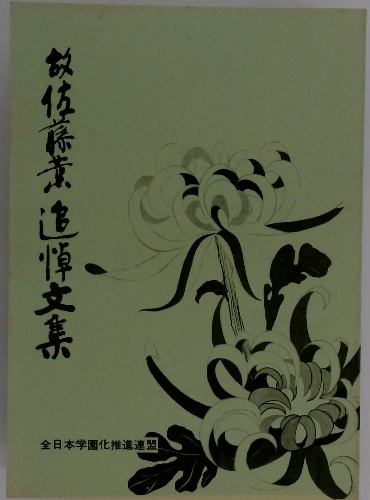 故佐藤業追悼文集
全日本学園化推進連盟